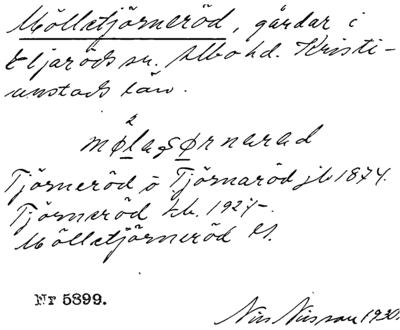 Mölletjörneröd, gårdar i
Eljaröds sn. Albo hd. Kristi-
anstads län.
2
møłaʂørnarad
Tjörneröd o Tjörnaröd jb 1874.
Tjörneröd tk. 1927-.
Mölletjörneröd
Nr 5899.
Nils Nilsson 1930.